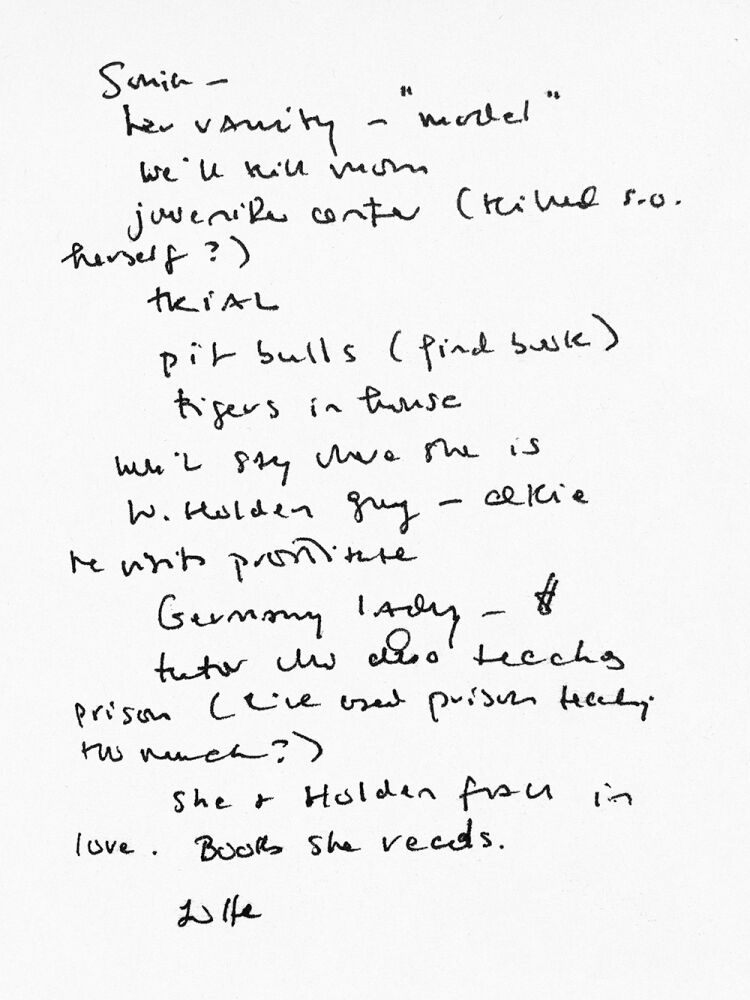 Sonia –
her vanity – "model"
we'll kill mom
juvenile center (killed s.o.
herself?)
TRIAL
pit bulls (find book)
tigers in house
won't say where she is
W. Holden guy – alkie
he visits prostitute
Germany lady – $
tutor who also teaches
prison (I've used prison teaching
too much?)
she & Holden fall in
love. Books she reads.